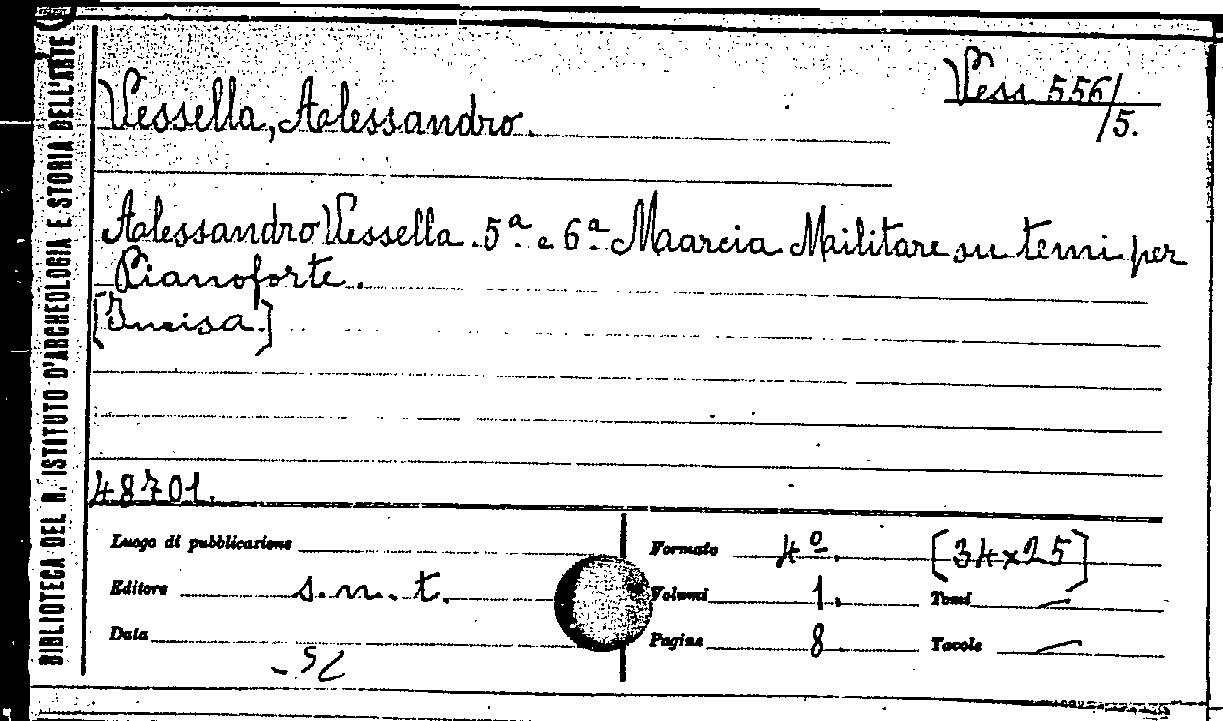 BIBLIOTECA DEL R. ISTITUTO D'ARCHEOLOGIA E STORIA DELL'ARTE
Vessella, Alessandro.
Vess. 556/
/5.
Alessandro Vessella. 5ª e 6ª Marcia Militare su temi per
Pianoforte.
[Incisa.]
48701.
Luogo di pubblicazione
Editore s.n.t.
Data
Formato 4º. [34x25]
Volumi 1. Tomi —
Pagine 8 Tavole —